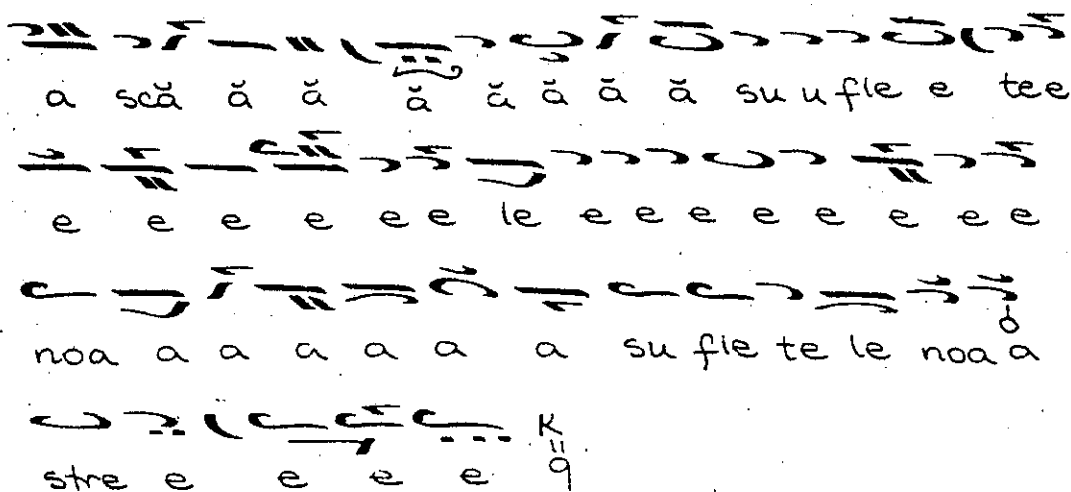 a scă ă ă ă ă ă ă ă su u fle e tee
e e e e e e le e e e e e e e e
noa a a a a a a su fle te le noa a
stre e e e e K q